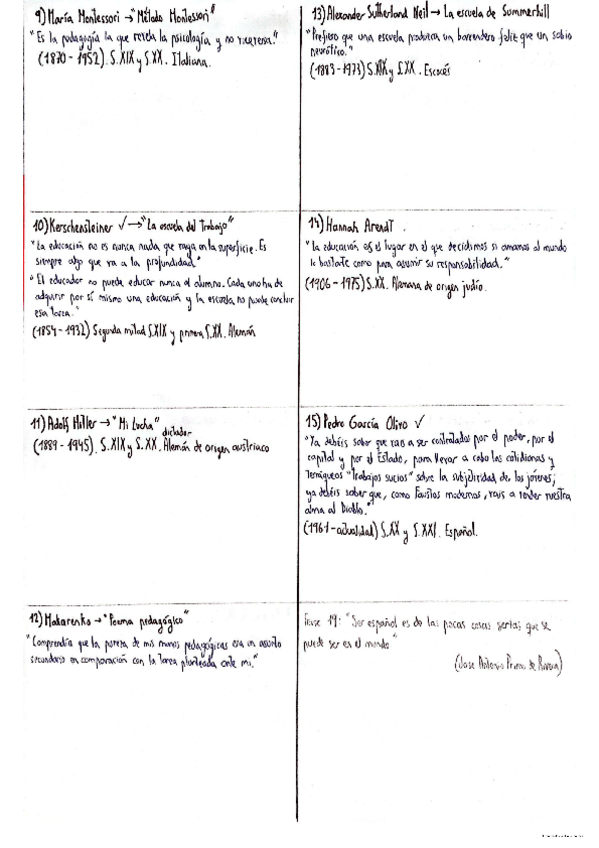 9) María Montessori → "Método Montessori"
"Es la pedagogía la que revela la psicología y no viceversa."
(1870 - 1952). S.XIX y S.XX. Italiana.
10) Kerschensteiner ✓ → "La escuela del Trabajo"
"La educación no es nunca nada que vaya en la superficie. Es
siempre algo que va a la profundidad."
"El educador no puede educar nunca al alumno. Cada uno ha de
adquirir por sí mismo una educación y la escuela no puede concluir
esa tarea."
(1854 - 1932) Segunda mitad S.XIX y primera S.XX. Alemán
11) Adolf Hitler → "Mi Lucha"
dictador
(1889 - 1945). S.XIX y S.XX. Alemán de origen austriaco
12) Makarenko → "Poema pedagógico"
"Comprendía que la pureza de mis manos pedagógicas era un asunto
secundario en comparación con la tarea planteada ante mi."
13) Alexander Sutherland Neil → La escuela de Summerhill
"Prefiero que una escuela produzca un barrendero feliz que un sabio
neurótico."
(1883 - 1973) S.XIX y S.XX. Escocés
14) Hannah Arendt.
"La educación es el lugar en el que decidimos si amamos al mundo
lo bastante como para asumir su responsabilidad."
(1906 - 1975) S.XX. Alemana de origen judío.
15) Pedro García Olivo ✓
"Ya debéis saber que vais a ser contratados por el poder, por el
capital y por el Estado, para llevar a cabo los cotidianos y
"trabajos sucios" sobre la subjetividad de los jóvenes;
ya debéis saber que, como Faustos modernos, vais a vender vuestra
alma al Diablo."
(1961 - actualidad) S.XX y S.XXI. Español.
Frase 19: "Ser español es de las pocas cosas serias que se
puede ser en el mundo"
(Jose Antonio Primo de Rivera)